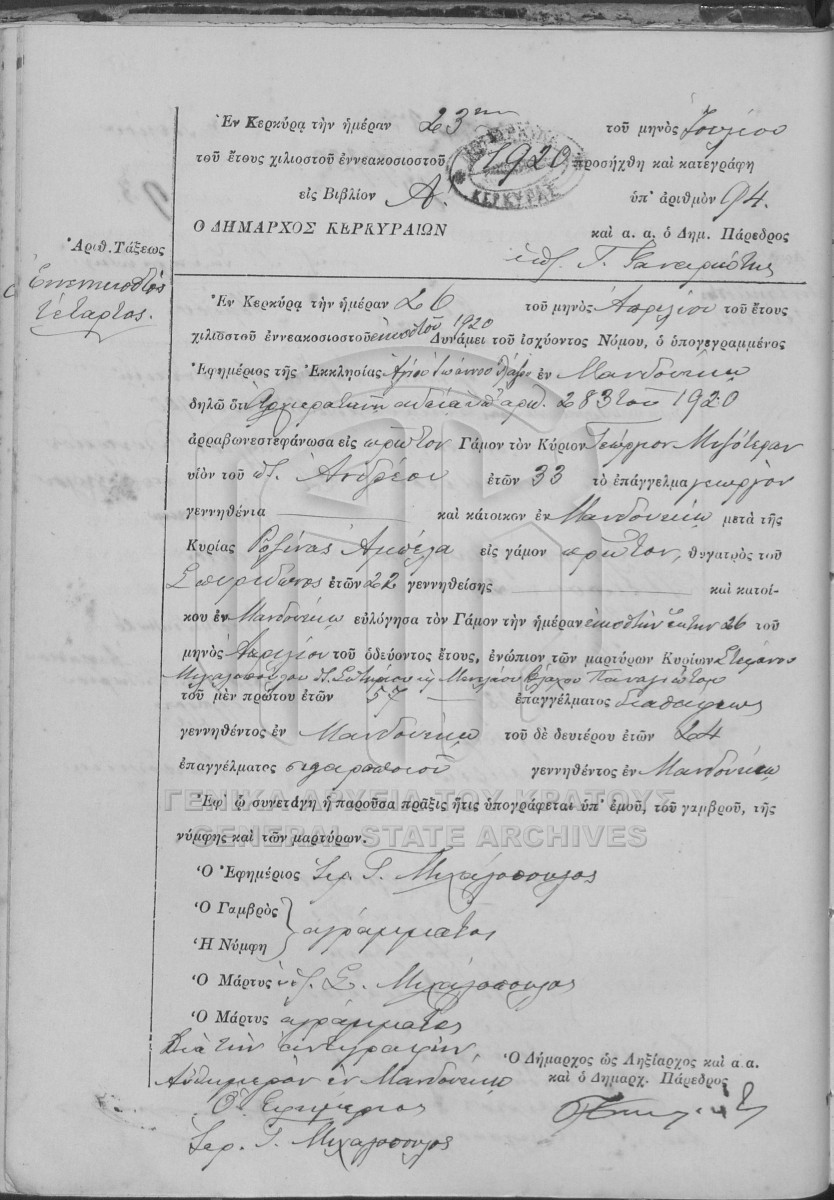 Ἐν Κερκύρᾳ τὴν ἡμέραν 23ην τοῦ μηνὸς Ἰουλίου
τοῦ ἔτους χιλιοστοῦ ἐννεακοσιοστοῦ 1920 προσήχθη καὶ κατεγράφη
εἰς Βιβλίον Α' ὑπ' ἀριθμὸν 94.
ΚΕΡΚΥΡΑΣ
Ο ΔΗΜΑΡΧΟΣ ΚΕΡΚΥΡΑΙΩΝ καὶ α. α. ὁ Δημ. Πάρεδρος
Ἀριθ. Τάξεως
Ἐνενηκοστὸς
τέταρτος.
Ἐν Κερκύρᾳ τὴν ἡμέραν 26 τοῦ μηνὸς Ἀπριλίου τοῦ ἔτους
χιλιοστοῦ ἐννεακοσιοστοῦ εἰκοστοῦ 1920 Δυνάμει τοῦ ἰσχύοντος Νόμου, ὁ ὑπογεγραμμένος
Ἐφημέριος τῆς Ἐκκλησίας Ἁγίου Ἰωάννου ἐν Μανδουκίῳ
δηλῶ ὅτι Ἀρχιερατικὴν ἄδειαν ὑπ' ἀριθ. 283 τοῦ 1920
ἀρραβωνεστεφάνωσα εἰς πρῶτον Γάμον τὸν Κύριον Γεώργιον
υἱὸν τοῦ Ἀνδρέου ἐτῶν 33 τὸ ἐπάγγελμα γεωργὸν
γεννηθέντα καὶ κάτοικον ἐν Μανδουκίῳ μετὰ τῆς
Κυρίας Ροζίνας εἰς γάμον πρῶτον, θυγατρὸς τοῦ
Σπυρίδωνος ἐτῶν 22 γεννηθείσης καὶ κατοί-
κου ἐν Μανδουκίῳ εὐλόγησα τὸν Γάμον τὴν ἡμέραν εἰκοστὴν ἕκτην 26 τοῦ
μηνὸς Ἀπριλίου τοῦ ὁδεύοντος ἔτους, ἐνώπιον τῶν μαρτύρων Κυρίων Στεφάνου
Μιχαλοπούλου Σωτηρίου Παναγιώτου
τοῦ μὲν πρώτου ἐτῶν 57 ἐπαγγέλματος
γεννηθέντος ἐν Μανδουκίῳ τοῦ δὲ δευτέρου ἐτῶν 24
ἐπαγγέλματος σιγαροποιοῦ γεννηθέντος ἐν Μανδουκίῳ
ΓΕΝΙΚΑ ΑΡΧΕΙΑ ΤΟΥ ΚΡΑΤΟΥΣ
Ἐφ' ᾧ συνετάγη ἡ παροῦσα πρᾶξις ἥτις ὑπογράφεται ὑπ' ἐμοῦ, τοῦ γαμβροῦ, τῆς
GENERAL STATE ARCHIVES
νύμφης καὶ τῶν μαρτύρων.
Ὁ Ἐφημέριος Ἱερ. Γ. Μιχαλόπουλος
Ὁ Γαμβρὸς
ἀγράμματοι
Ἡ Νύμφη
Ὁ Μάρτυς Σ. Μιχαλόπουλος
Ὁ Μάρτυς ἀγράμματος
Διὰ τὴν ἀντιγραφὴν
Αὐθημερὸν ἐν Μανδουκίῳ
Ὁ Ἐφημέριος
Ἱερ. Γ. Μιχαλόπουλος
Ὁ Δήμαρχος ὡς Ληξίαρχος καὶ α.α.
καὶ ὁ Δημαρχ. Πάρεδρος